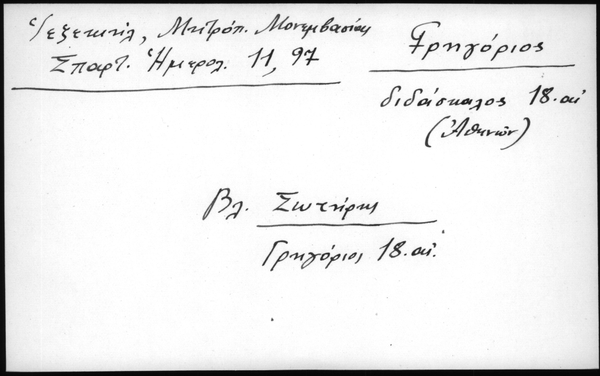 Ἰεζεκιήλ, Μητρόπ. Μονεμβασίας
Σπαρτ. Ἡμερολ. 11, 97
Γρηγόριος
διδάσκαλος 18. αἰ
(Ἀθηνῶν)
Βλ. Σωτήρης
Γρηγόριος 18. αἰ.